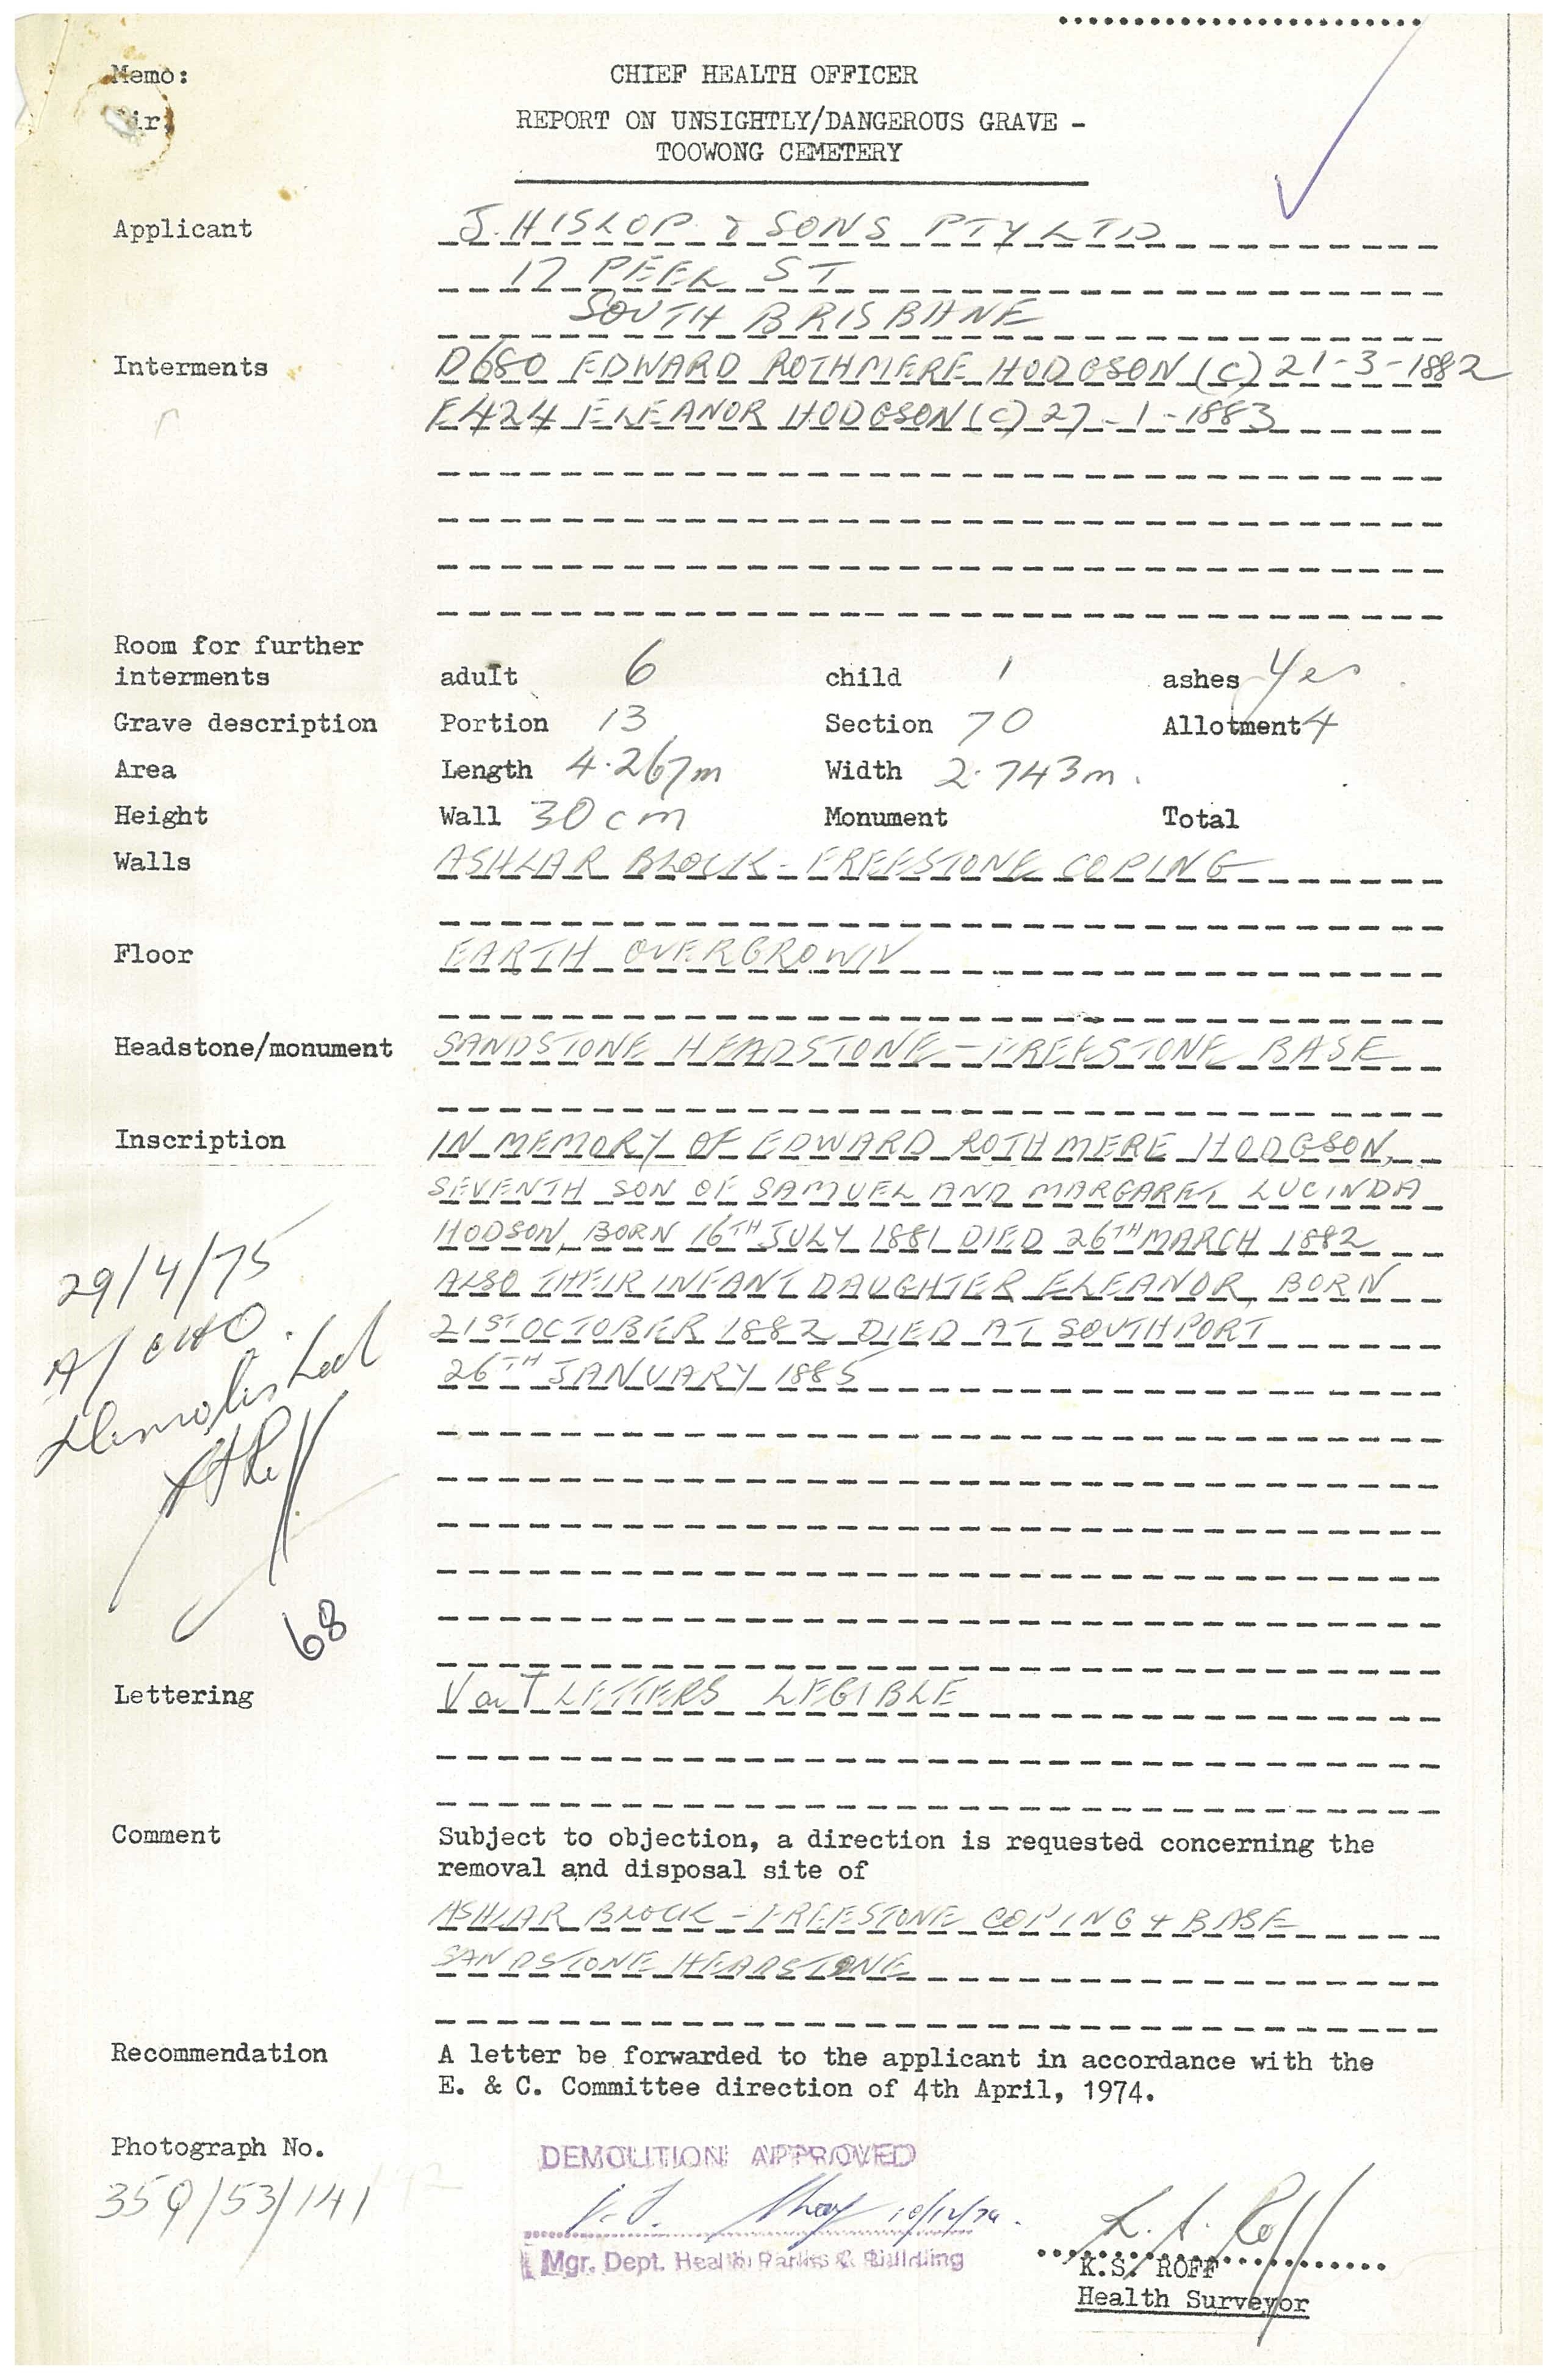 Memo: CHIEF HEALTH OFFICER
Sir, REPORT ON UNSIGHTLY/DANGEROUS GRAVE -
TOOWONG CEMETERY
Applicant J. HISLOP & SONS PTY LTD
17 PEEL ST
SOUTH BRISBANE
Interments D680 EDWARD ROTHMERE HODGSON (C) 21-3-1882
E424 ELEANOR HODGSON (C) 27-1-1883
Room for further
interments adult 6 child 1 ashes Yes
Grave description Portion 13 Section 70 Allotment 4
Area Length 4.267m Width 2.743m.
Height Wall 30cm Monument Total
Walls ASHLAR BLOCK - FREESTONE COPING
Floor EARTH OVERGROWN
Headstone/monument SANDSTONE HEADSTONE - FREESTONE BASE
Inscription IN MEMORY OF EDWARD ROTHMERE HODGSON,
SEVENTH SON OF SAMUEL AND MARGARET LUCINDA
HODSON, BORN 16TH JULY 1881 DIED 26TH MARCH 1882
ALSO THEIR INFANT DAUGHTER ELEANOR, BORN
21ST OCTOBER 1882 DIED AT SOUTHPORT
26TH JANUARY 1885
29/4/75
A/CHO.
Demolished
68
Lettering V CUT LETTERS LEGIBLE
Comment Subject to objection, a direction is requested concerning the
removal and disposal site of
ASHLAR BLOCK - FREESTONE COPING + BASE
SANDSTONE HEADSTONE
Recommendation A letter be forwarded to the applicant in accordance with the
E. & C. Committee direction of 4th April, 1974.
Photograph No.
35Q/53/141
DEMOLITION APPROVED
10/12/74.
Mgr. Dept. Health Parks & Building
K.S. Roff
K.S. ROFF
Health Surveyor